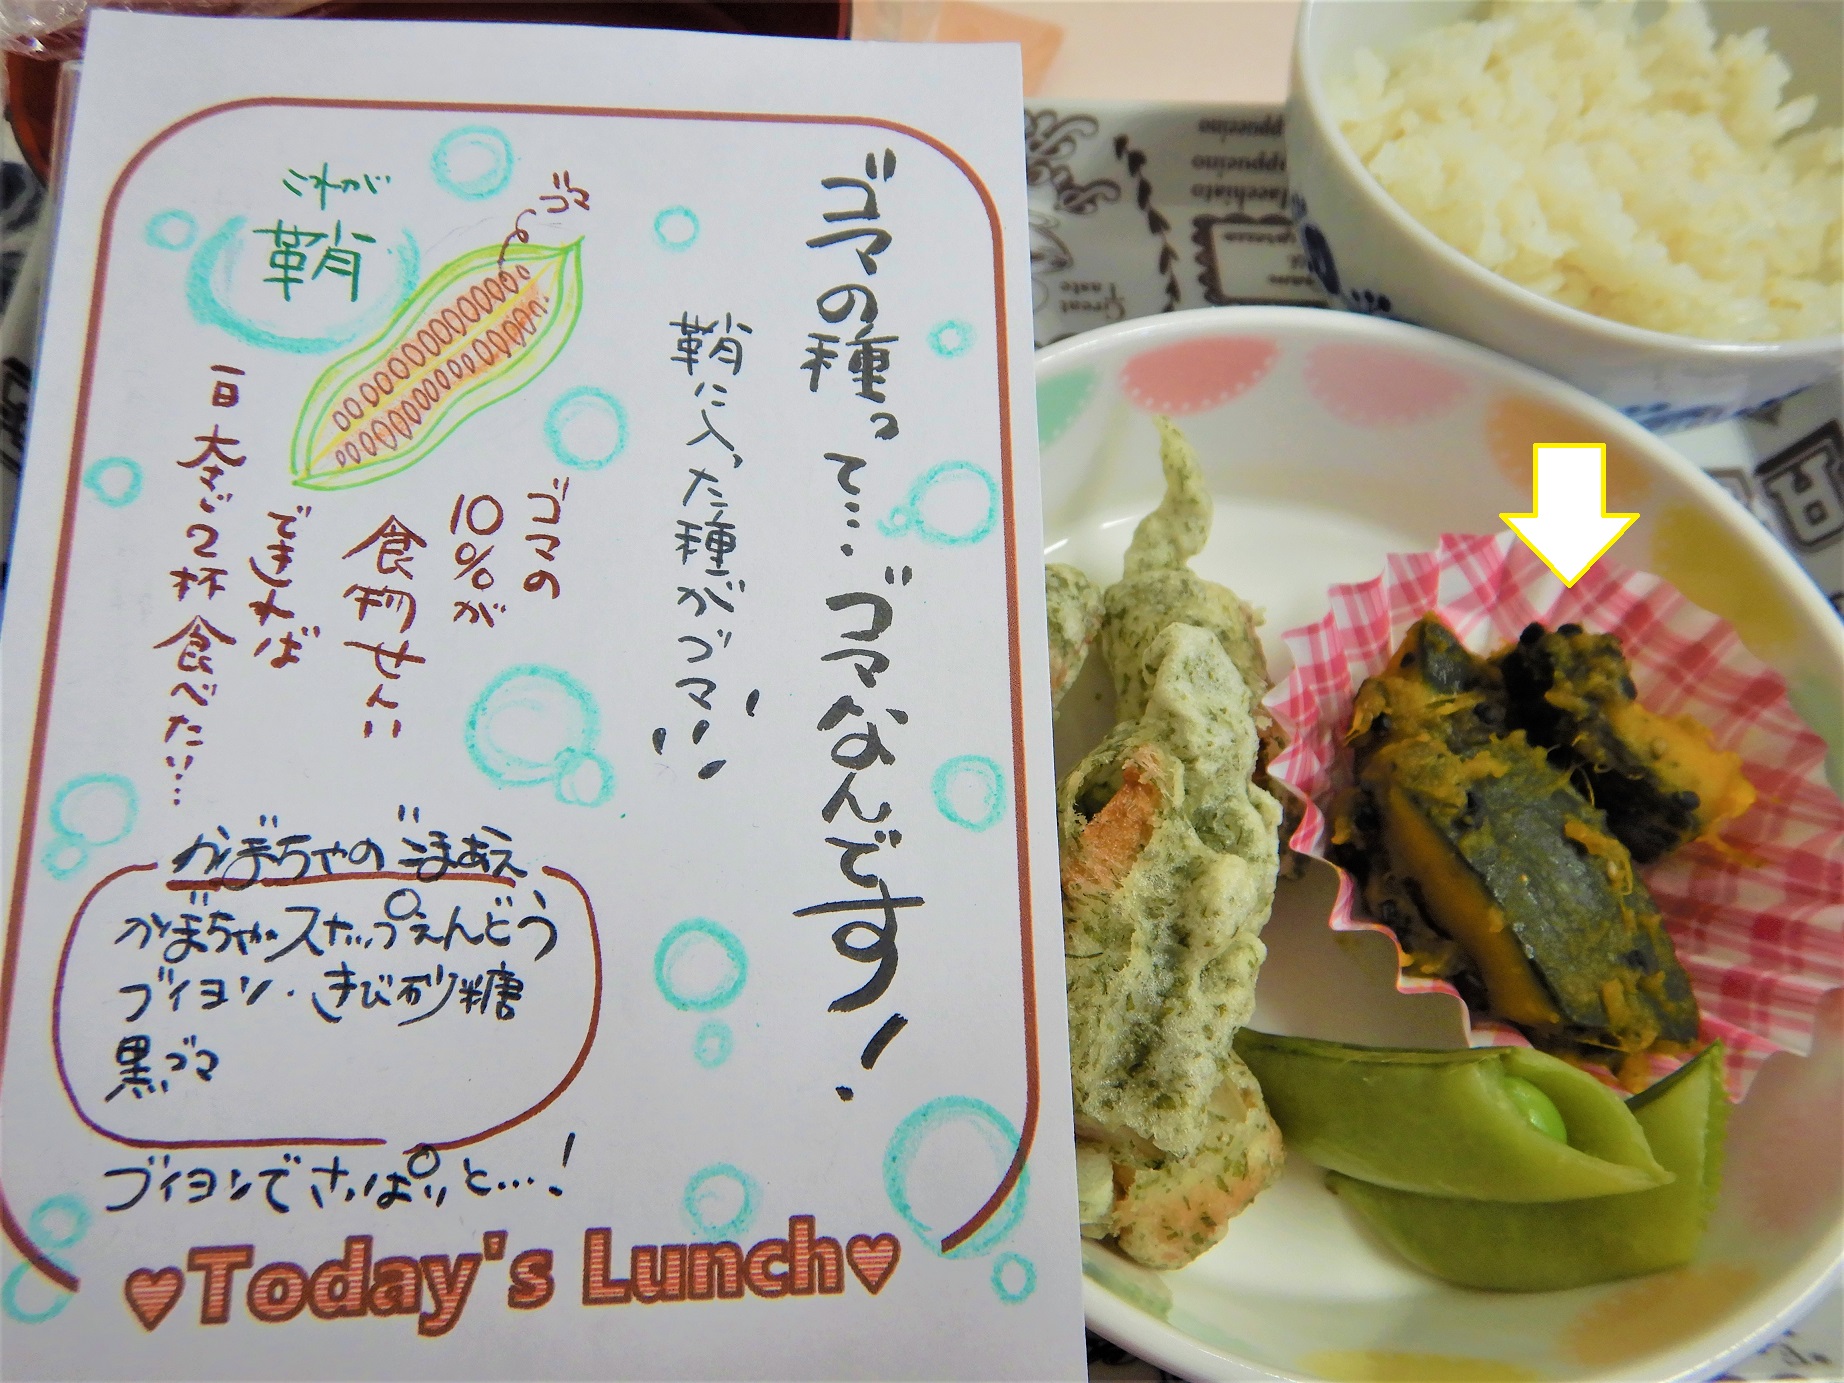 ゴマの種って…ゴマなんです!
鞘に入った種がゴマ!!
これが
鞘
ゴマ
ゴマの
10%が
食物せんい
できれば
一日 大さじ2杯 食べたい…
かぼちゃのごまあえ
かぼちゃ・スナップえんどう
ブイヨン・きび砂糖
黒ゴマ
ブイヨンでさっぱりと…!
♥Today's Lunch♥
Cappuccino
Macchiato
Great
Taste